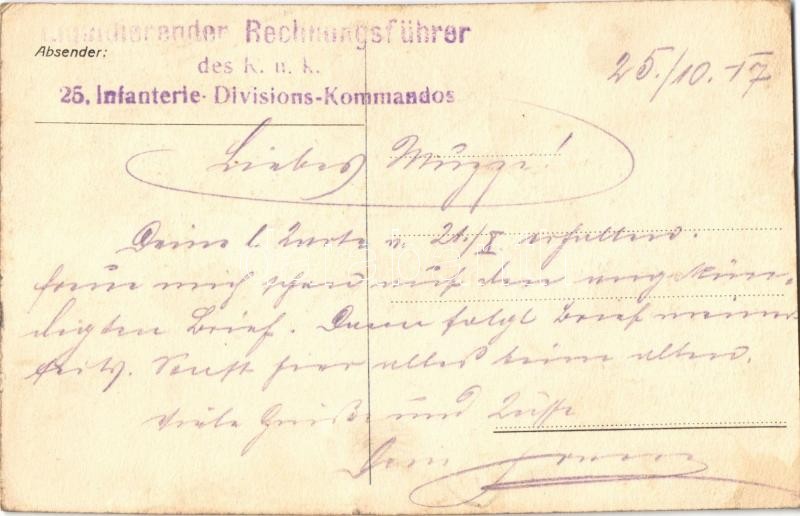 Liquidierender Rechnungsführer
Absender:
des k. u. k.
25. Infanterie-Divisions-Kommandos
25./10. 17
Liebes
Deine l. Karte v. 21./X. erhalten.
freue mich schon auf den angekün-
digten Brief. Dann folgt Brief meiner-
seits. Sonst hier alles beim alten.
Viele Grüße und Küsse
Dein